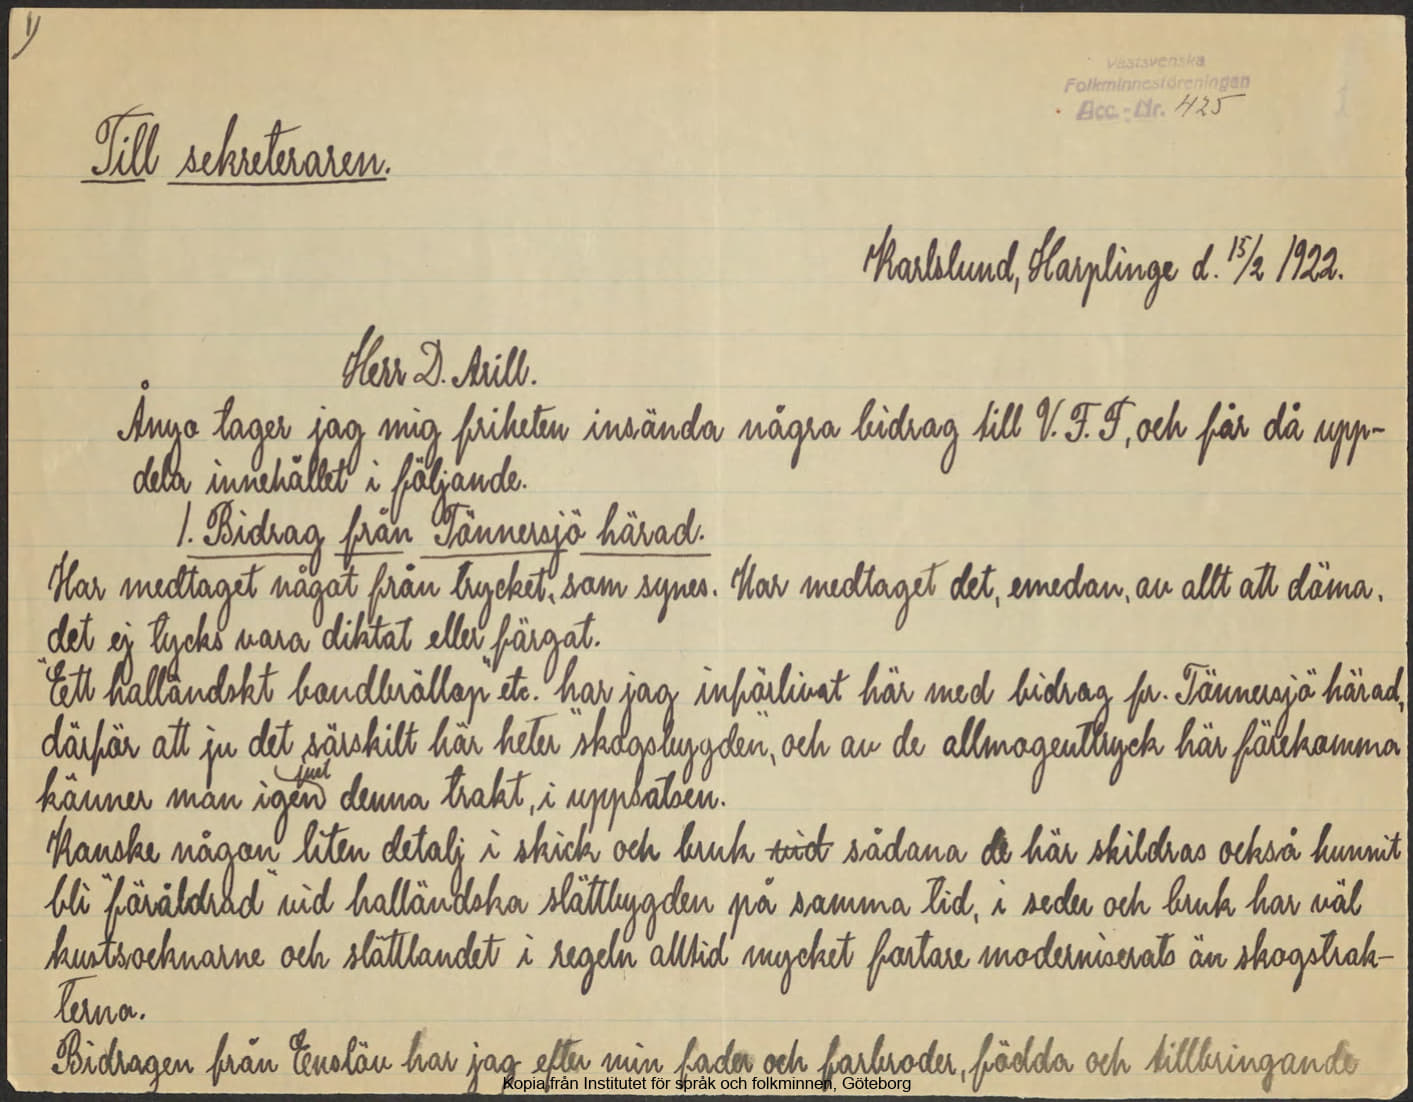 1)
Västsvenska
Folkminnesföreningan
Acc.-Nr. 425
1
Till sekreteraren.
Karlslund, Harplinge d. 15/2 1922.
Herr D. Arill.
Ånyo tager jag mig friheten insända några bidrag till V. F. F, och får då upp-
dela innehållet i följande.
1. Bidrag från Tönnersjö härad.
Har medtaget något från trycket, som synes. Har medtaget det, emedan, av allt att döma,
det ej tycks vara diktat eller färgat.
"Ett halländskt bondbröllop" etc. har jag införlivat här med bidrag fr. Tönnersjö härad,
därför att ju det särskilt här heter "skogsbygden", och av de allmogeuttryck här förekomma
känner man igen just denna trakt, i uppsatsen.
Kanske någon liten detalj i skick och bruk vid sådana de här skildras också hunnit
bli "föråldrad" vid halländska slättbygden på samma tid, i seder och bruk har väl
kustsocknarne och slättlandet i regeln alltid mycket fortare moderniserats än skogstrak-
terna.
Bidragen från Enslöv har jag efter min fader och farbroder, födda och tillbringande
Kopia från Institutet för språk och folkminnen, Göteborg